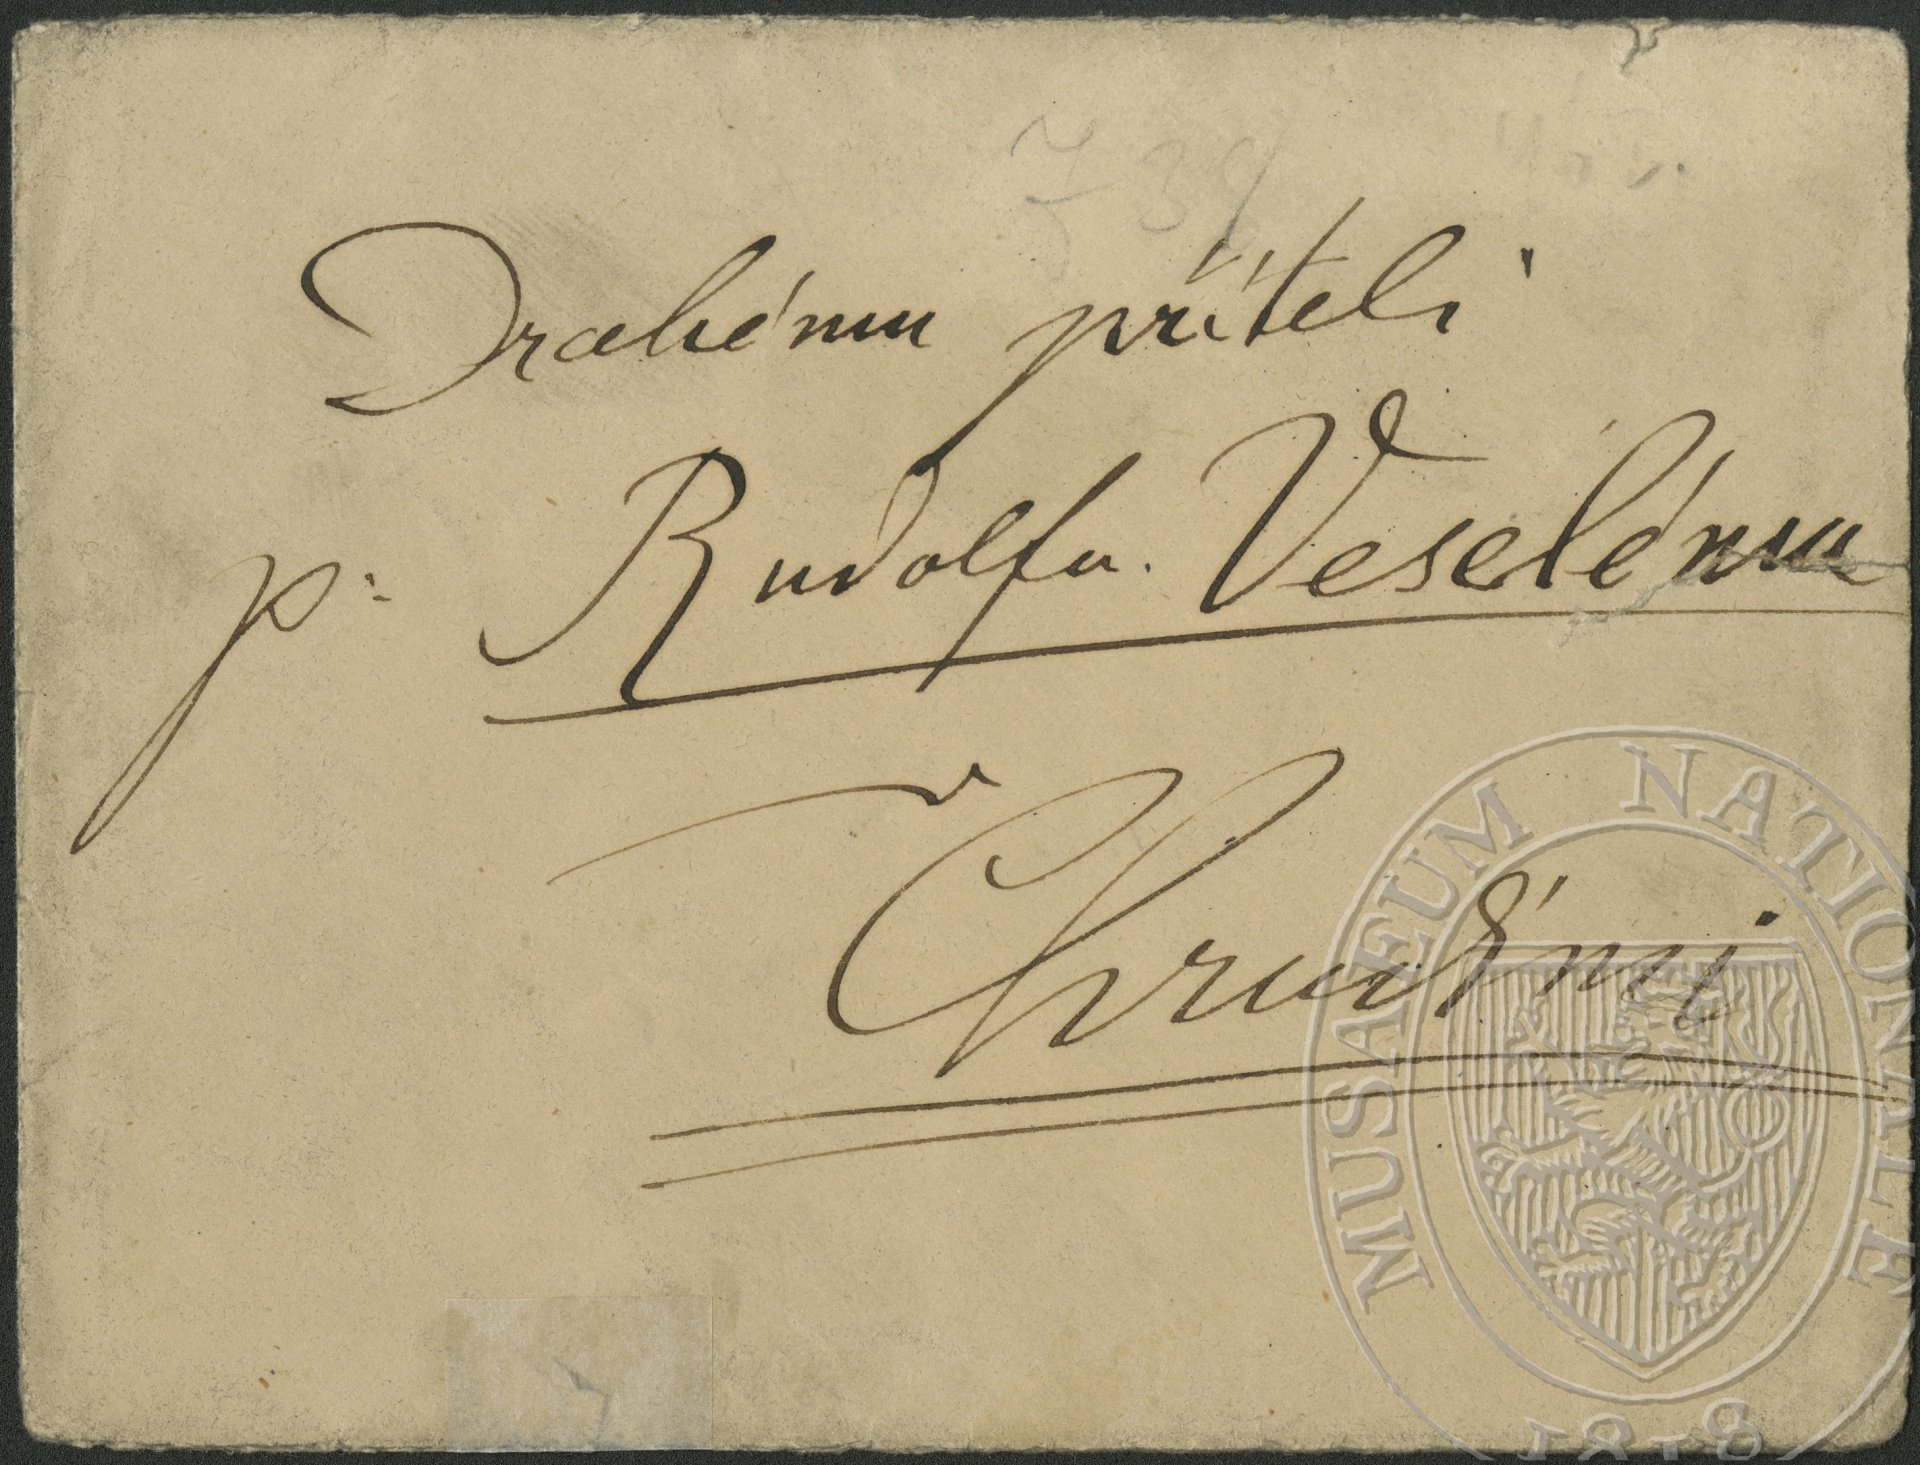 Drahému příteli
p. Rudolfu Veselému
v
Chrudími
MUSAEUM NATIONALE
1818